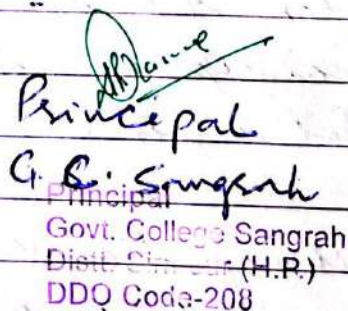 Principal
G. C. Sangrah
Principal
Govt. College Sangrah
Distt. Sirmour (H.P.)
DDO Code-208